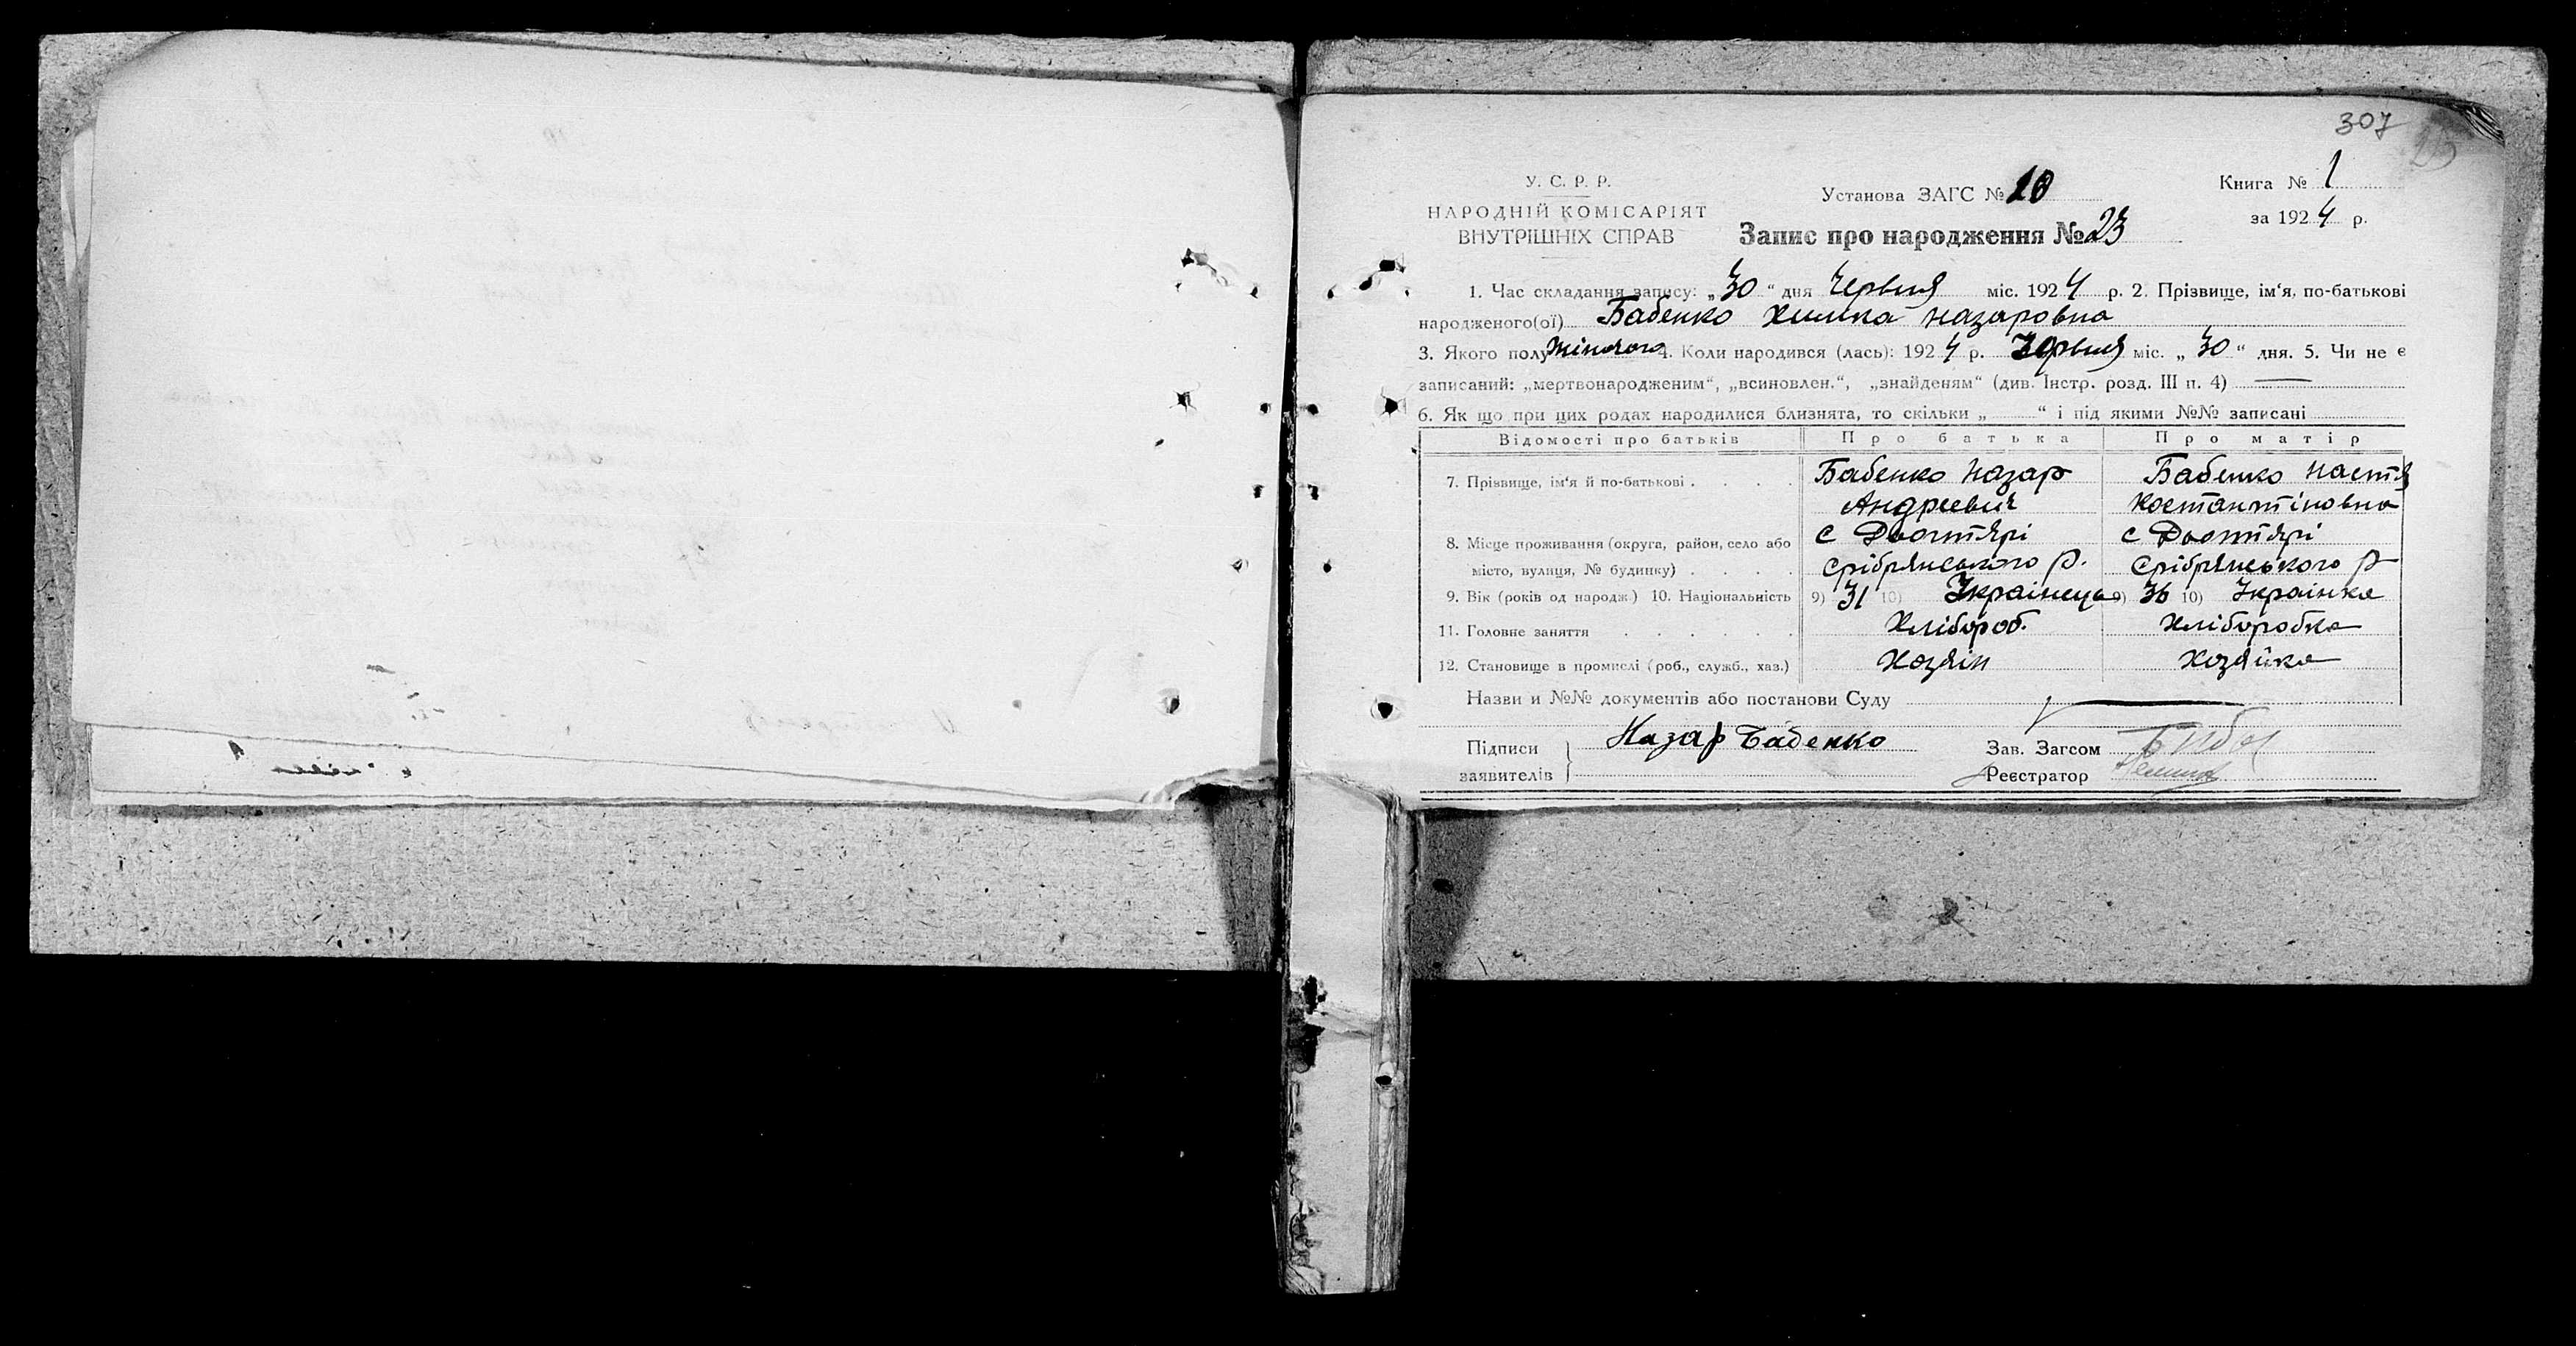 307
У. С. Р. Р.
НАРОДНІЙ КОМІСАРІЯТ
ВНУТРІШНІХ СПРАВ
Установа ЗАГС № 10
Запис про народження № 23
Книга № 1
за 1924 р.
1. Час складання запису: „30“ дня Червня міс. 1924 р. 2. Прізвище, ім‘я, по-батькові
народженого(ої) Бабенко Химка Назаровна
3. Якого полу жіночого 4. Коли народився (лась): 1924 р. Червня міс. „30“ дня. 5. Чи не є
записаний: „мертвонародженим“, „всиновлен.“, „знайденям“ (див. Інстр. розд. III п. 4) —
6. Як що при цих родах народилися близнята, то скільки „ “ і під якими №№ записані
Відомості про батьків Про батька Про матір
7. Прізвище, ім‘я й по-батькові . . . . Бабенко Назар Бабенко Настя
Андреевич Костантіновна
8. Місце проживання (округа, район, село або с Дігтярі с Дігтярі
місто, вулиця, № будинку) . . . . Срібрянського р. Срібрянського р
9. Вік (років од народж.) 10. Національність 9) 31 10) Украінець 9) 36 10) Украінка
11. Головне заняття . . . . . . Хлібороб. Хліборобка
12. Становище в промислі (роб., служб., хаз.) Хозяін Хозяйка
Назви и №№ документів або постанови Суду —
Підписи Назар Бабенко Зав. Загсом
заявителів Реєстратор